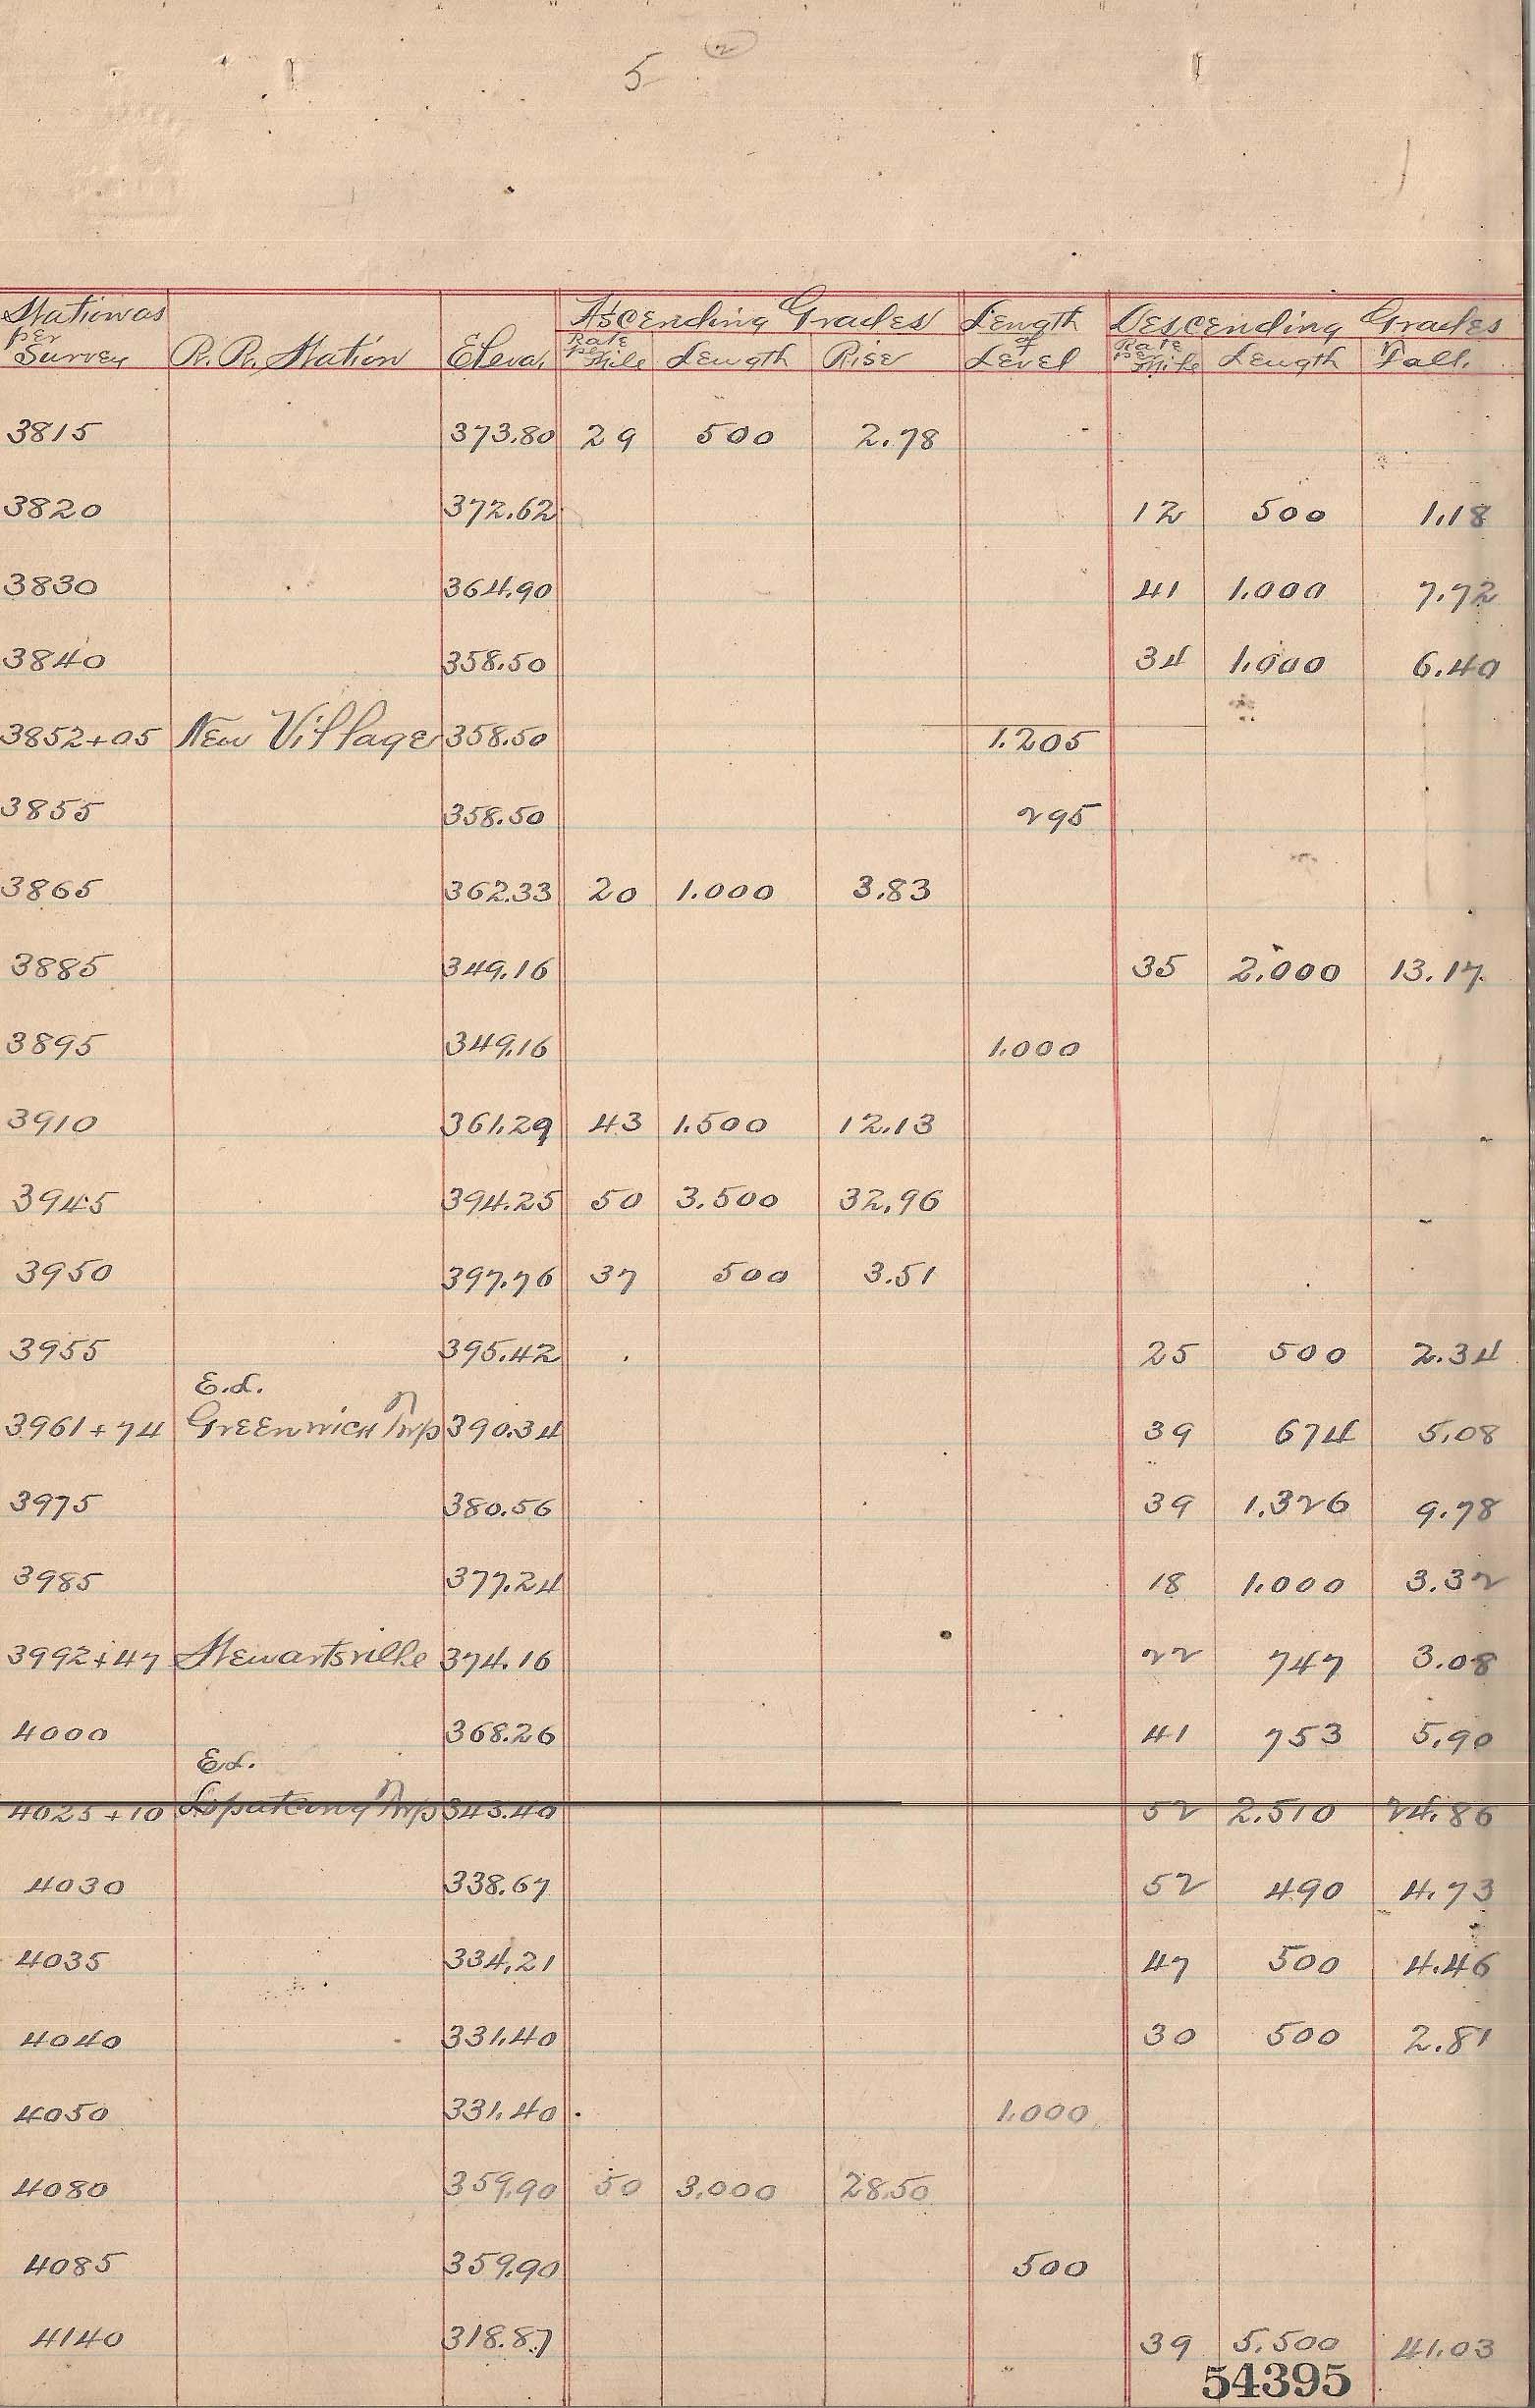 5 2
Station as Ascending Grades Length Descending Grades
per Rate of Rate
Survey R. R. Station Eleva. per Mile Length Rise Level per Mile Length Fall.
3815 373.80 29 500 2.78
3820 372.62 12 500 1.18
3830 364.90 41 1.000 7.72
3840 358.50 34 1.000 6.40
3852+05 New Village 358.50 1.205
3855 358.50 295
3865 362.33 20 1.000 3.83
3885 349.16 35 2.000 13.17
3895 349.16 1.000
3910 361.29 43 1.500 12.13
3945 394.25 50 3.500 32.96
3950 397.76 37 500 3.51
3955 395.42 25 500 2.34
E.L.
3961+74 Greenwich Twp 390.34 39 674 5.08
3975 380.56 39 1.326 9.78
3985 377.24 18 1.000 3.32
3992+47 Stewartsville 374.16 22 747 3.08
4000 368.26 41 753 5.90
E.L.
4025+10 Lopatcong Twp 343.40 52 2.510 24.86
4030 338.67 52 490 4.73
4035 334.21 47 500 4.46
4040 331.40 30 500 2.81
4050 331.40 1.000
4080 359.90 50 3.000 28.50
4085 359.90 500
4140 318.87 39 5.500 41.03
54395